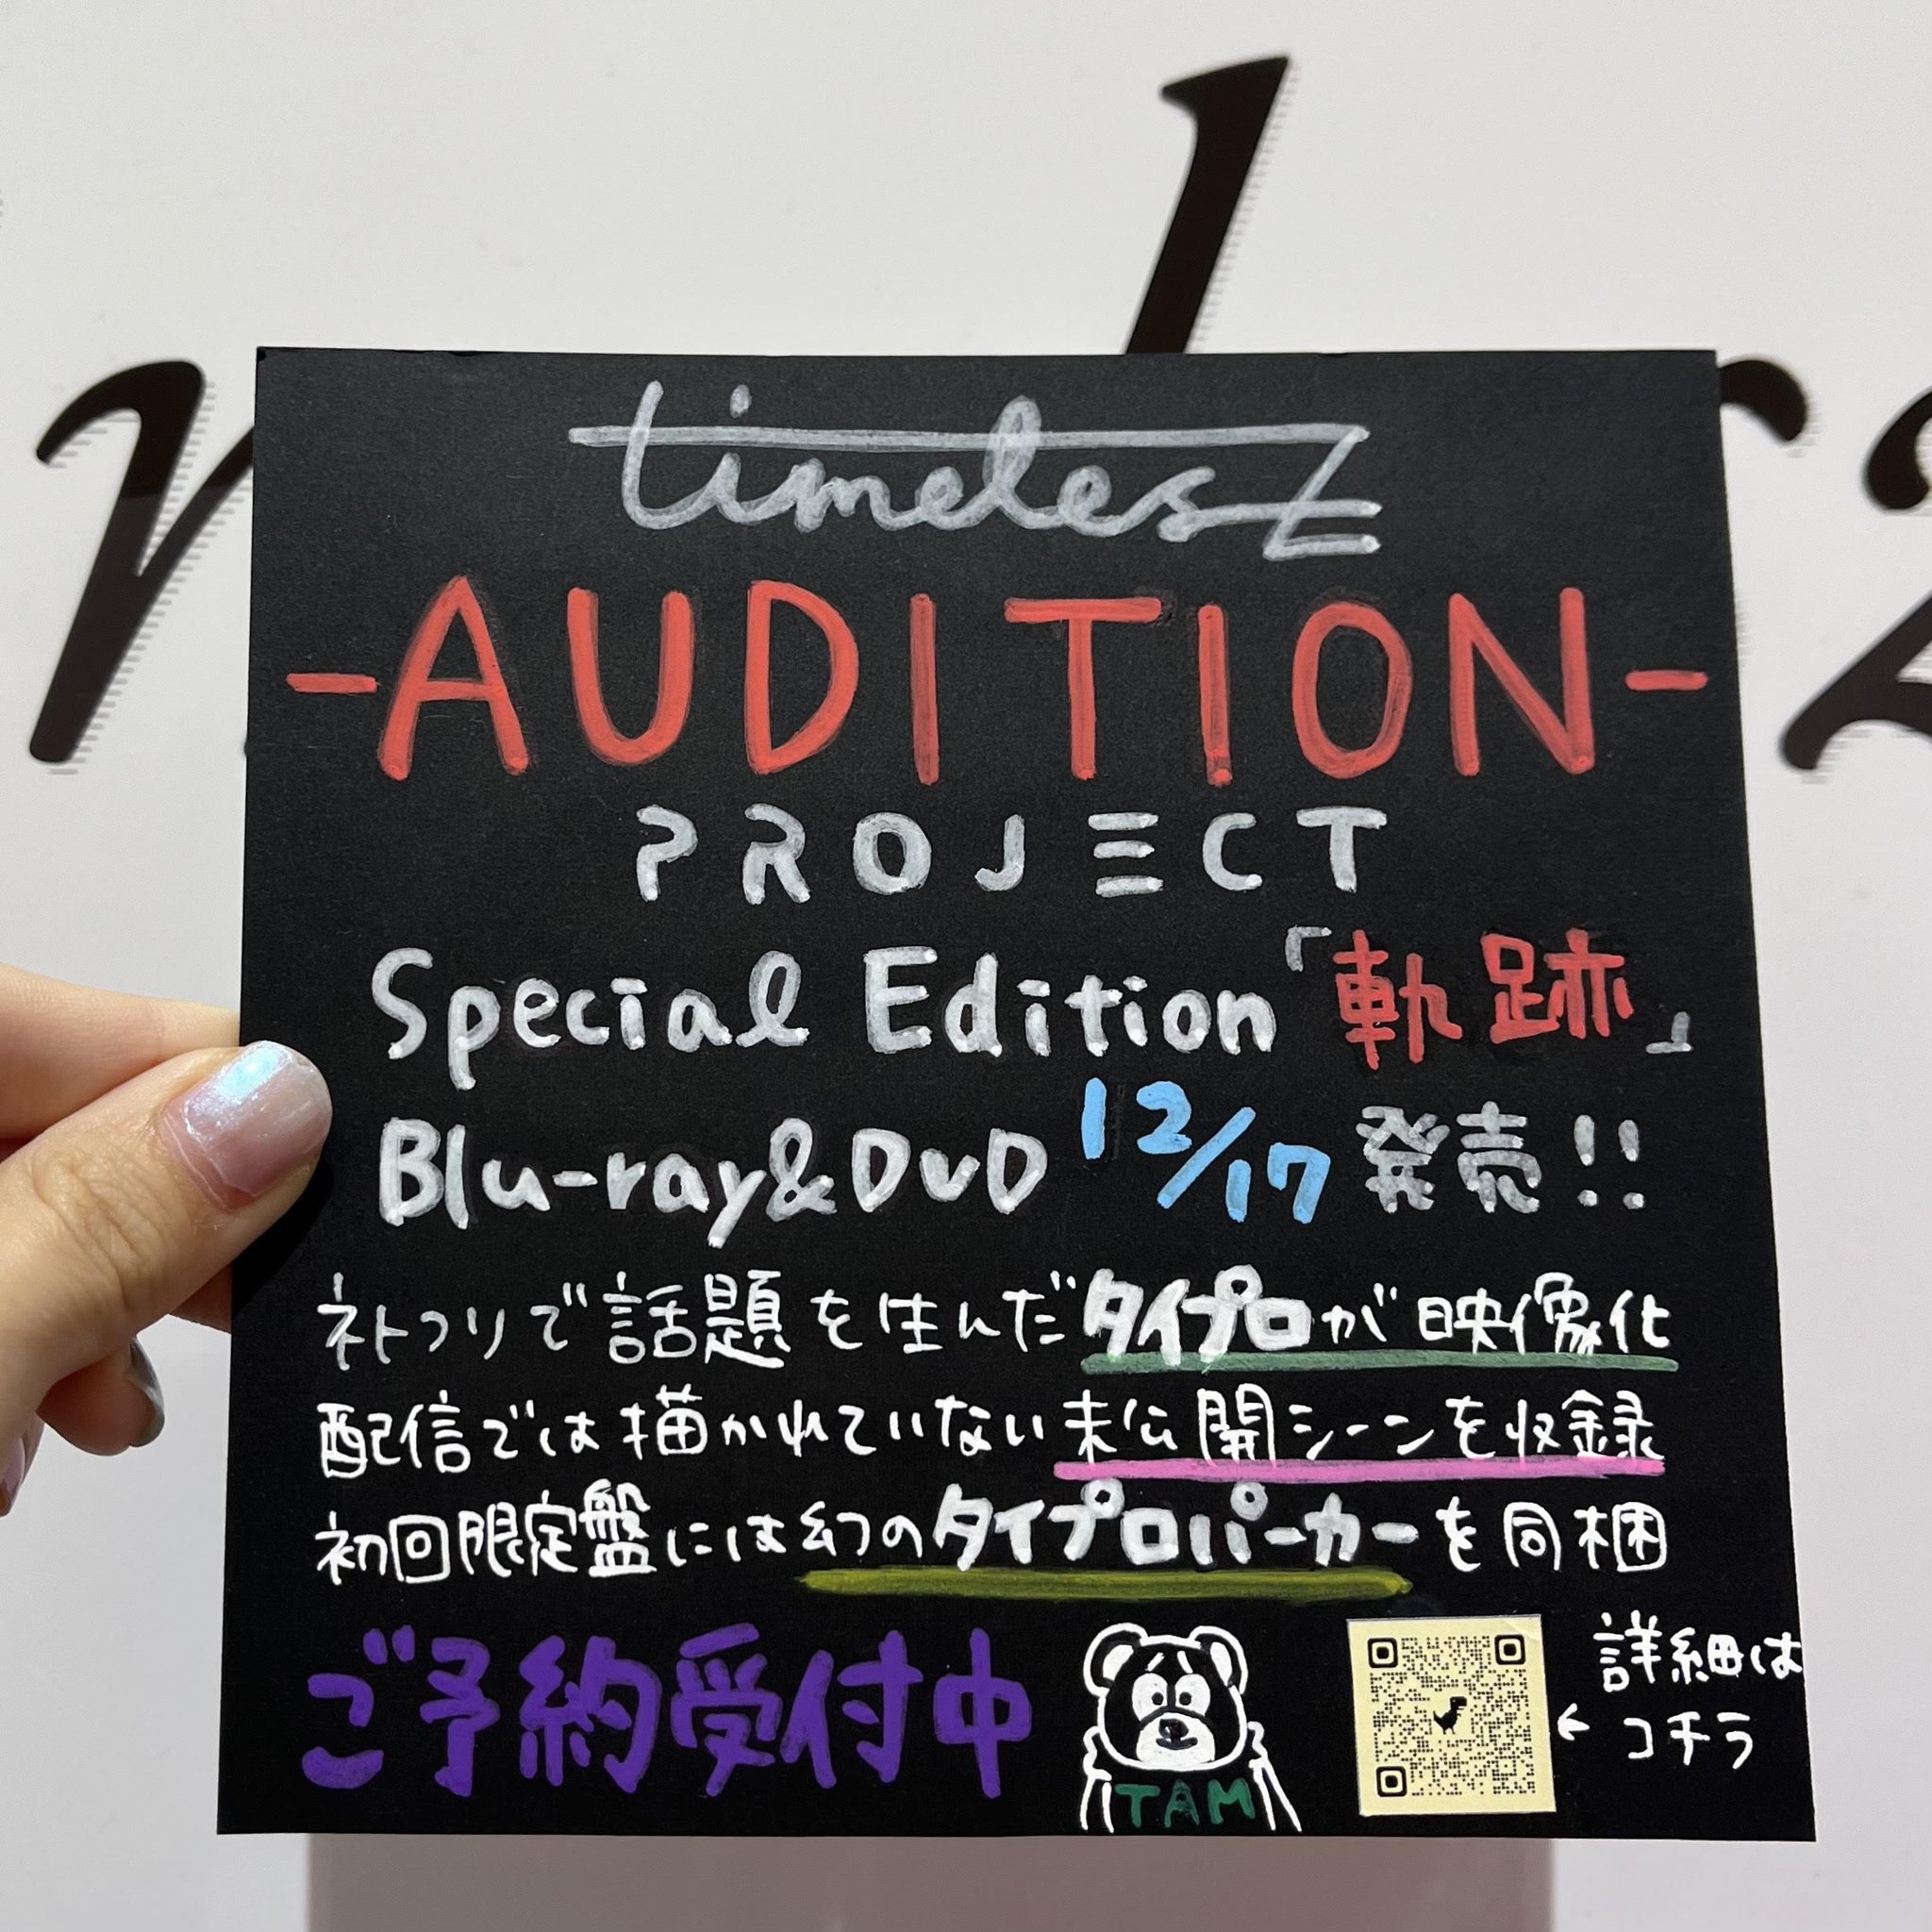 timelesz
-AUDITION-
PROJECT
Special Edition「軌跡」
Blu-ray&DVD 12/17 発売!!
ネトフリで話題を生んだタイプロが映像化
配信では描かれていない未公開シーンを収録
初回限定盤には幻のタイプロパーカーを同梱
ご予約受付中
TAM
←詳細は
コチラ